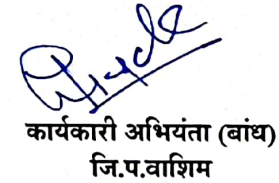 कार्यकारी अभियंता (बांध)
जि.प.वाशिम